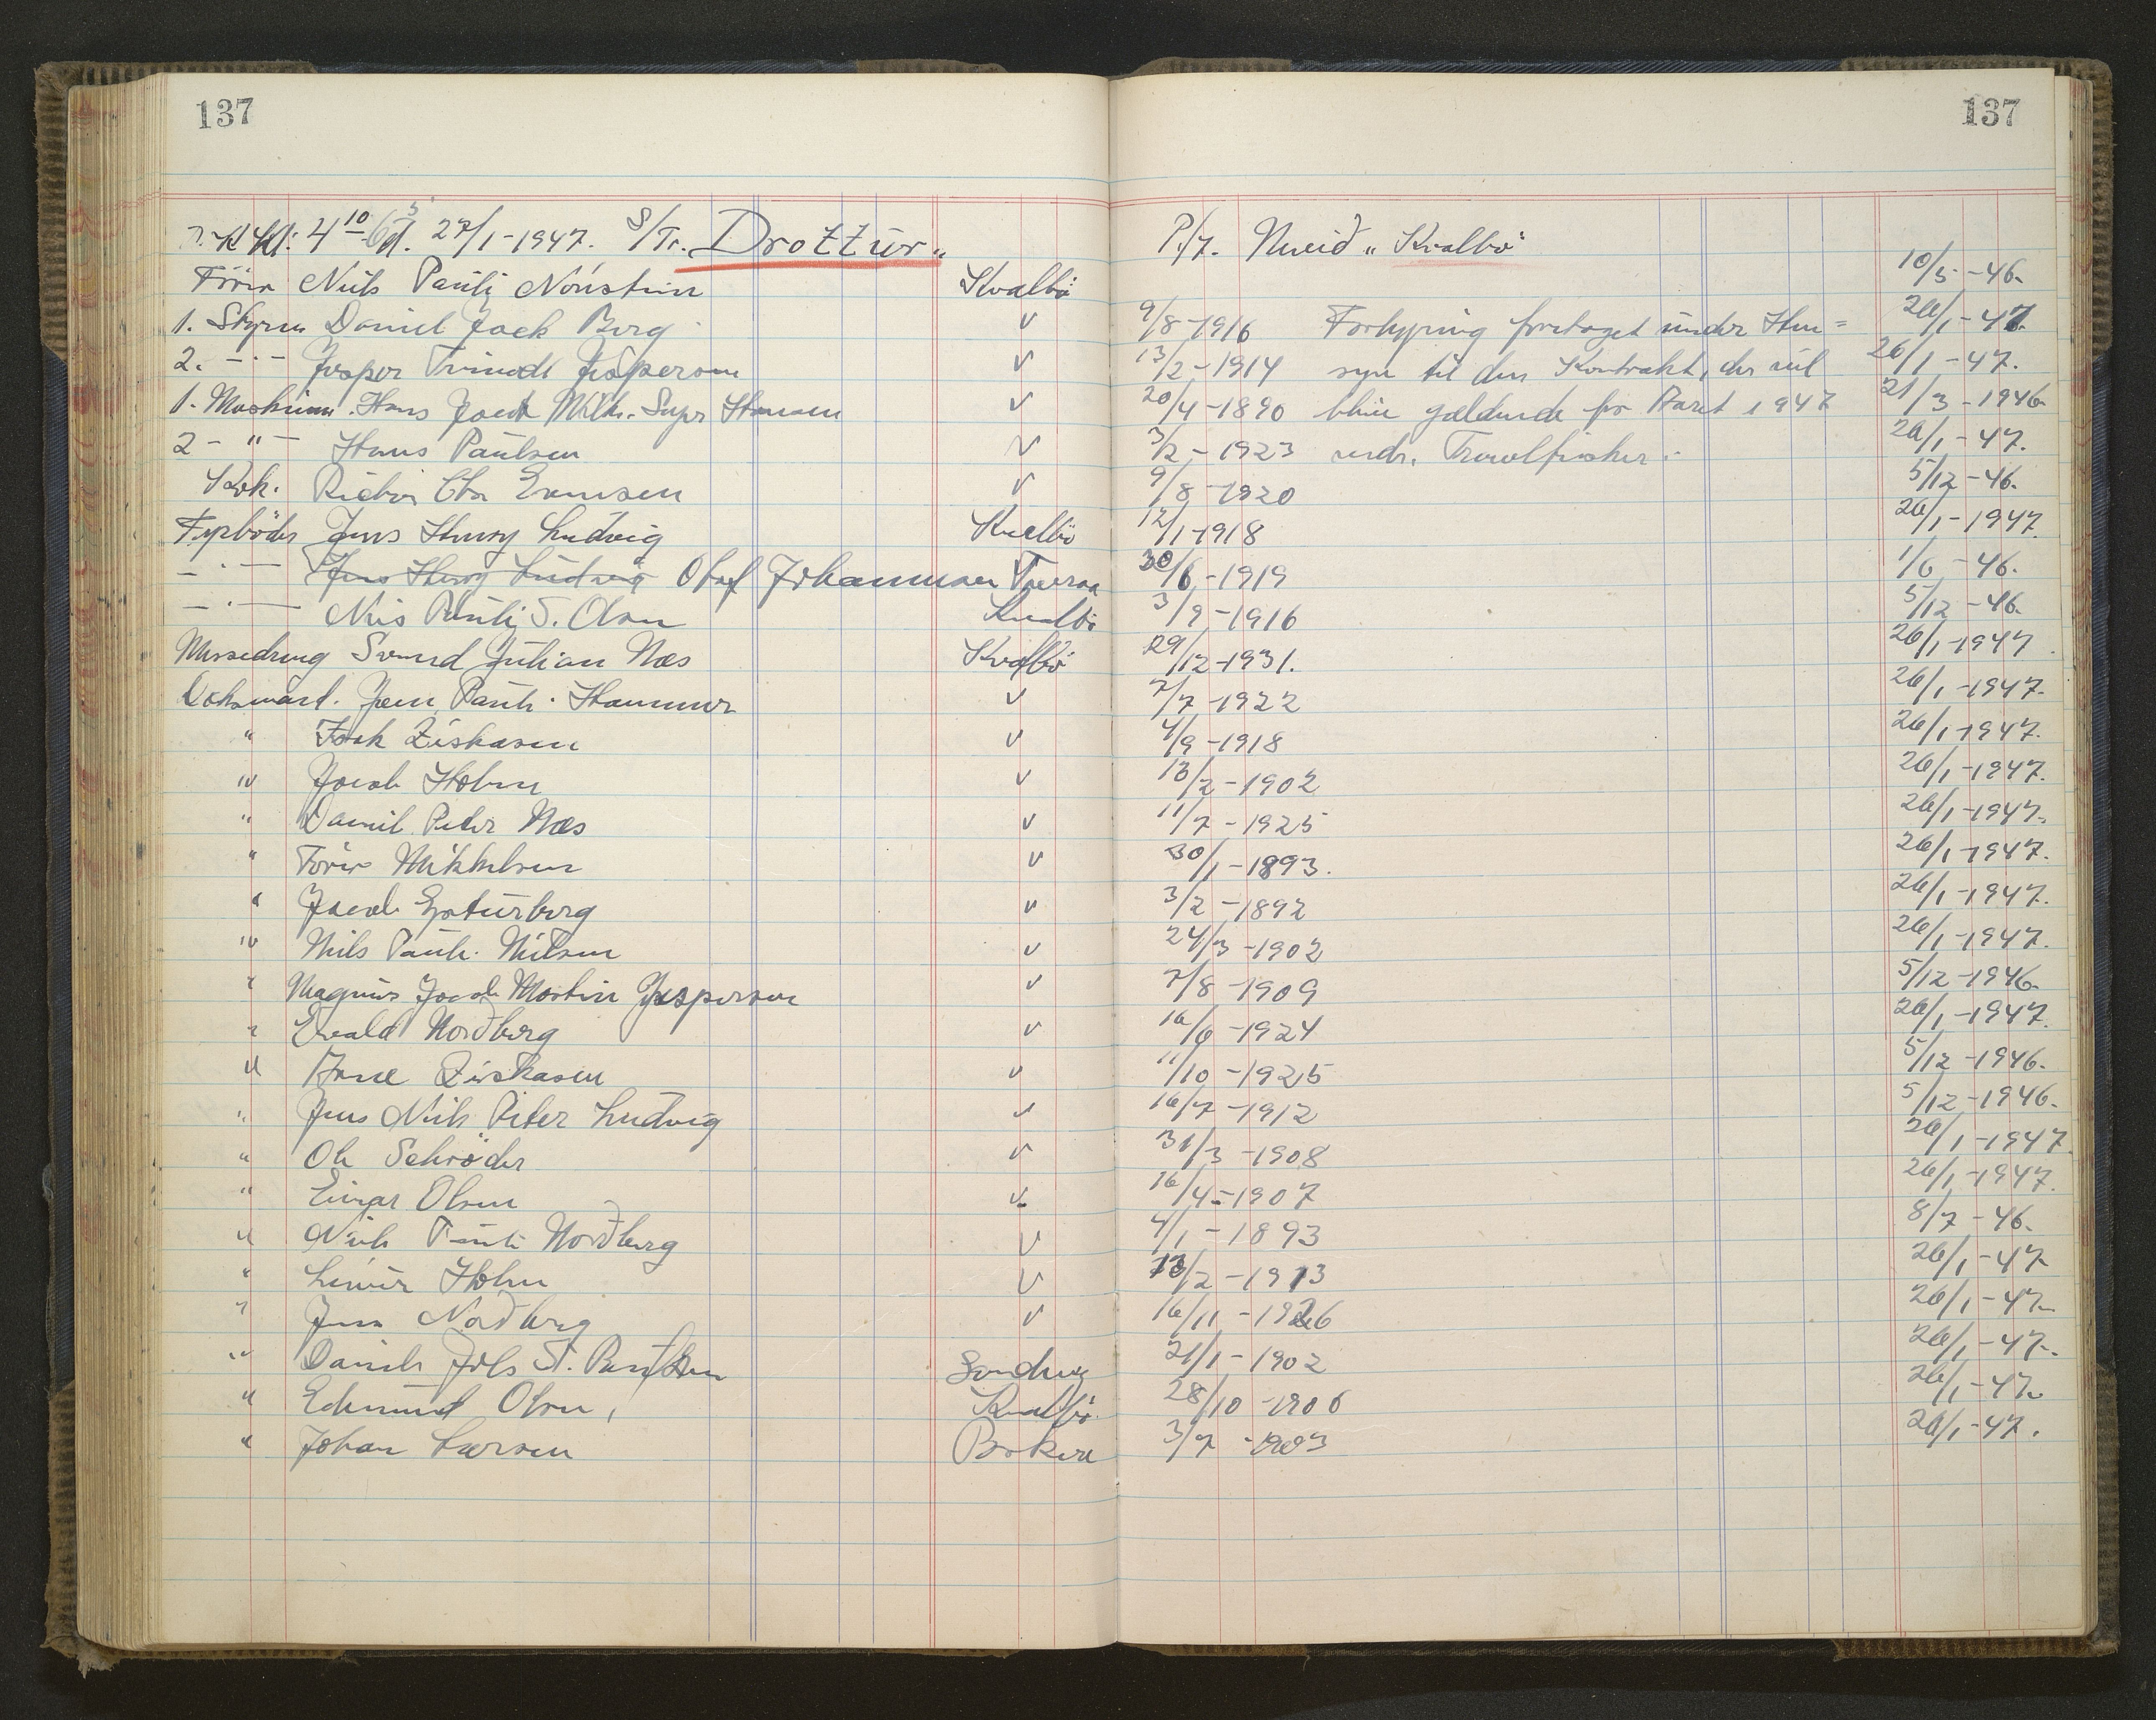 137 137
Kl. 4 10 27/1-1947. S/Tr. "Drottur" P/f. Nueið "Kvalbø"
Fører Niels Pauli Nónstein Kvalbø 10/5-46.
1. Styrm Daniel Jack Berg " 9/8-1916 Forhyring foretaget under Hen= 26/1-47.
2. -"- Jesper Trinode Jespersen " 13/2-1914 syn til den Kontrakt, der vil 26/1-47.
1. Maskinm. Hans Jacob Hansen " 20/4-1890 blive gældende for Aaret 1947 21/3-1946
2 -"- Hans Paulsen " 3/2-1923 vedr. Trawlfisker. 26/1-47.
Kok. " 9/8-1920 5/12-46.
Fyrbøder Jens Henry Ludvig Kvalbø 12/1-1918 26/1-1947.
-"- Jens Henry Ludvig Olaf Johannesen Tveraa 30/6-1919 1/6-46.
-"- Nils Pauli S. Olsen Kvalbø 3/9-1916 5/12-46.
Messedreng Svend Julian Næs Kvalbø 29/12-1931. 26/1-1947
Doksmand. Jens Pauli Hammer " 7/7-1922 26/1-1947.
" Jack Ziskasen " 4/9-1918 26/1-1947.
" Jacob Holm " 13/2-1902 26/1-1947.
" Daniel Peter Næs " 11/7-1925 26/1-1947.
" Tórir Mikkelsen " 30/1-1893. 26/1-1947.
" Jacob Egsturberg " 3/2-1892 26/1-1947.
" Nils Pauli Nielsen " 24/3-1902 26/1-1947.
" Magnus Jacob Martin Jespersen " 7/8-1909 5/12-1946.
" Evald Norðberg " 16/6-1924 26/1-1947.
" Arne Ziskasen " 11/10-1925 5/12-1946.
" Jens Niels Peter Ludvig " 16/7-1912 5/12-1946.
" Ole Schrøder " 31/3-1908 26/1-1947
" Einar Olsen " 16/4-1907 26/1-1947.
" Niels Pauli Norðberg " 4/1-1893 8/7-46.
" Holm " 13/2-1913 26/1-47
" Jens Norðberg " 16/11-1926 26/1-47.
" Daniel Johs S. Poulsen Sandvig 21/1-1902 26/1-47.
" Edmund Olsen, Kvalbø 28/10-1906 26/1-47.
" Johan Larsen Porkere 3/7-1903 26/1-47.